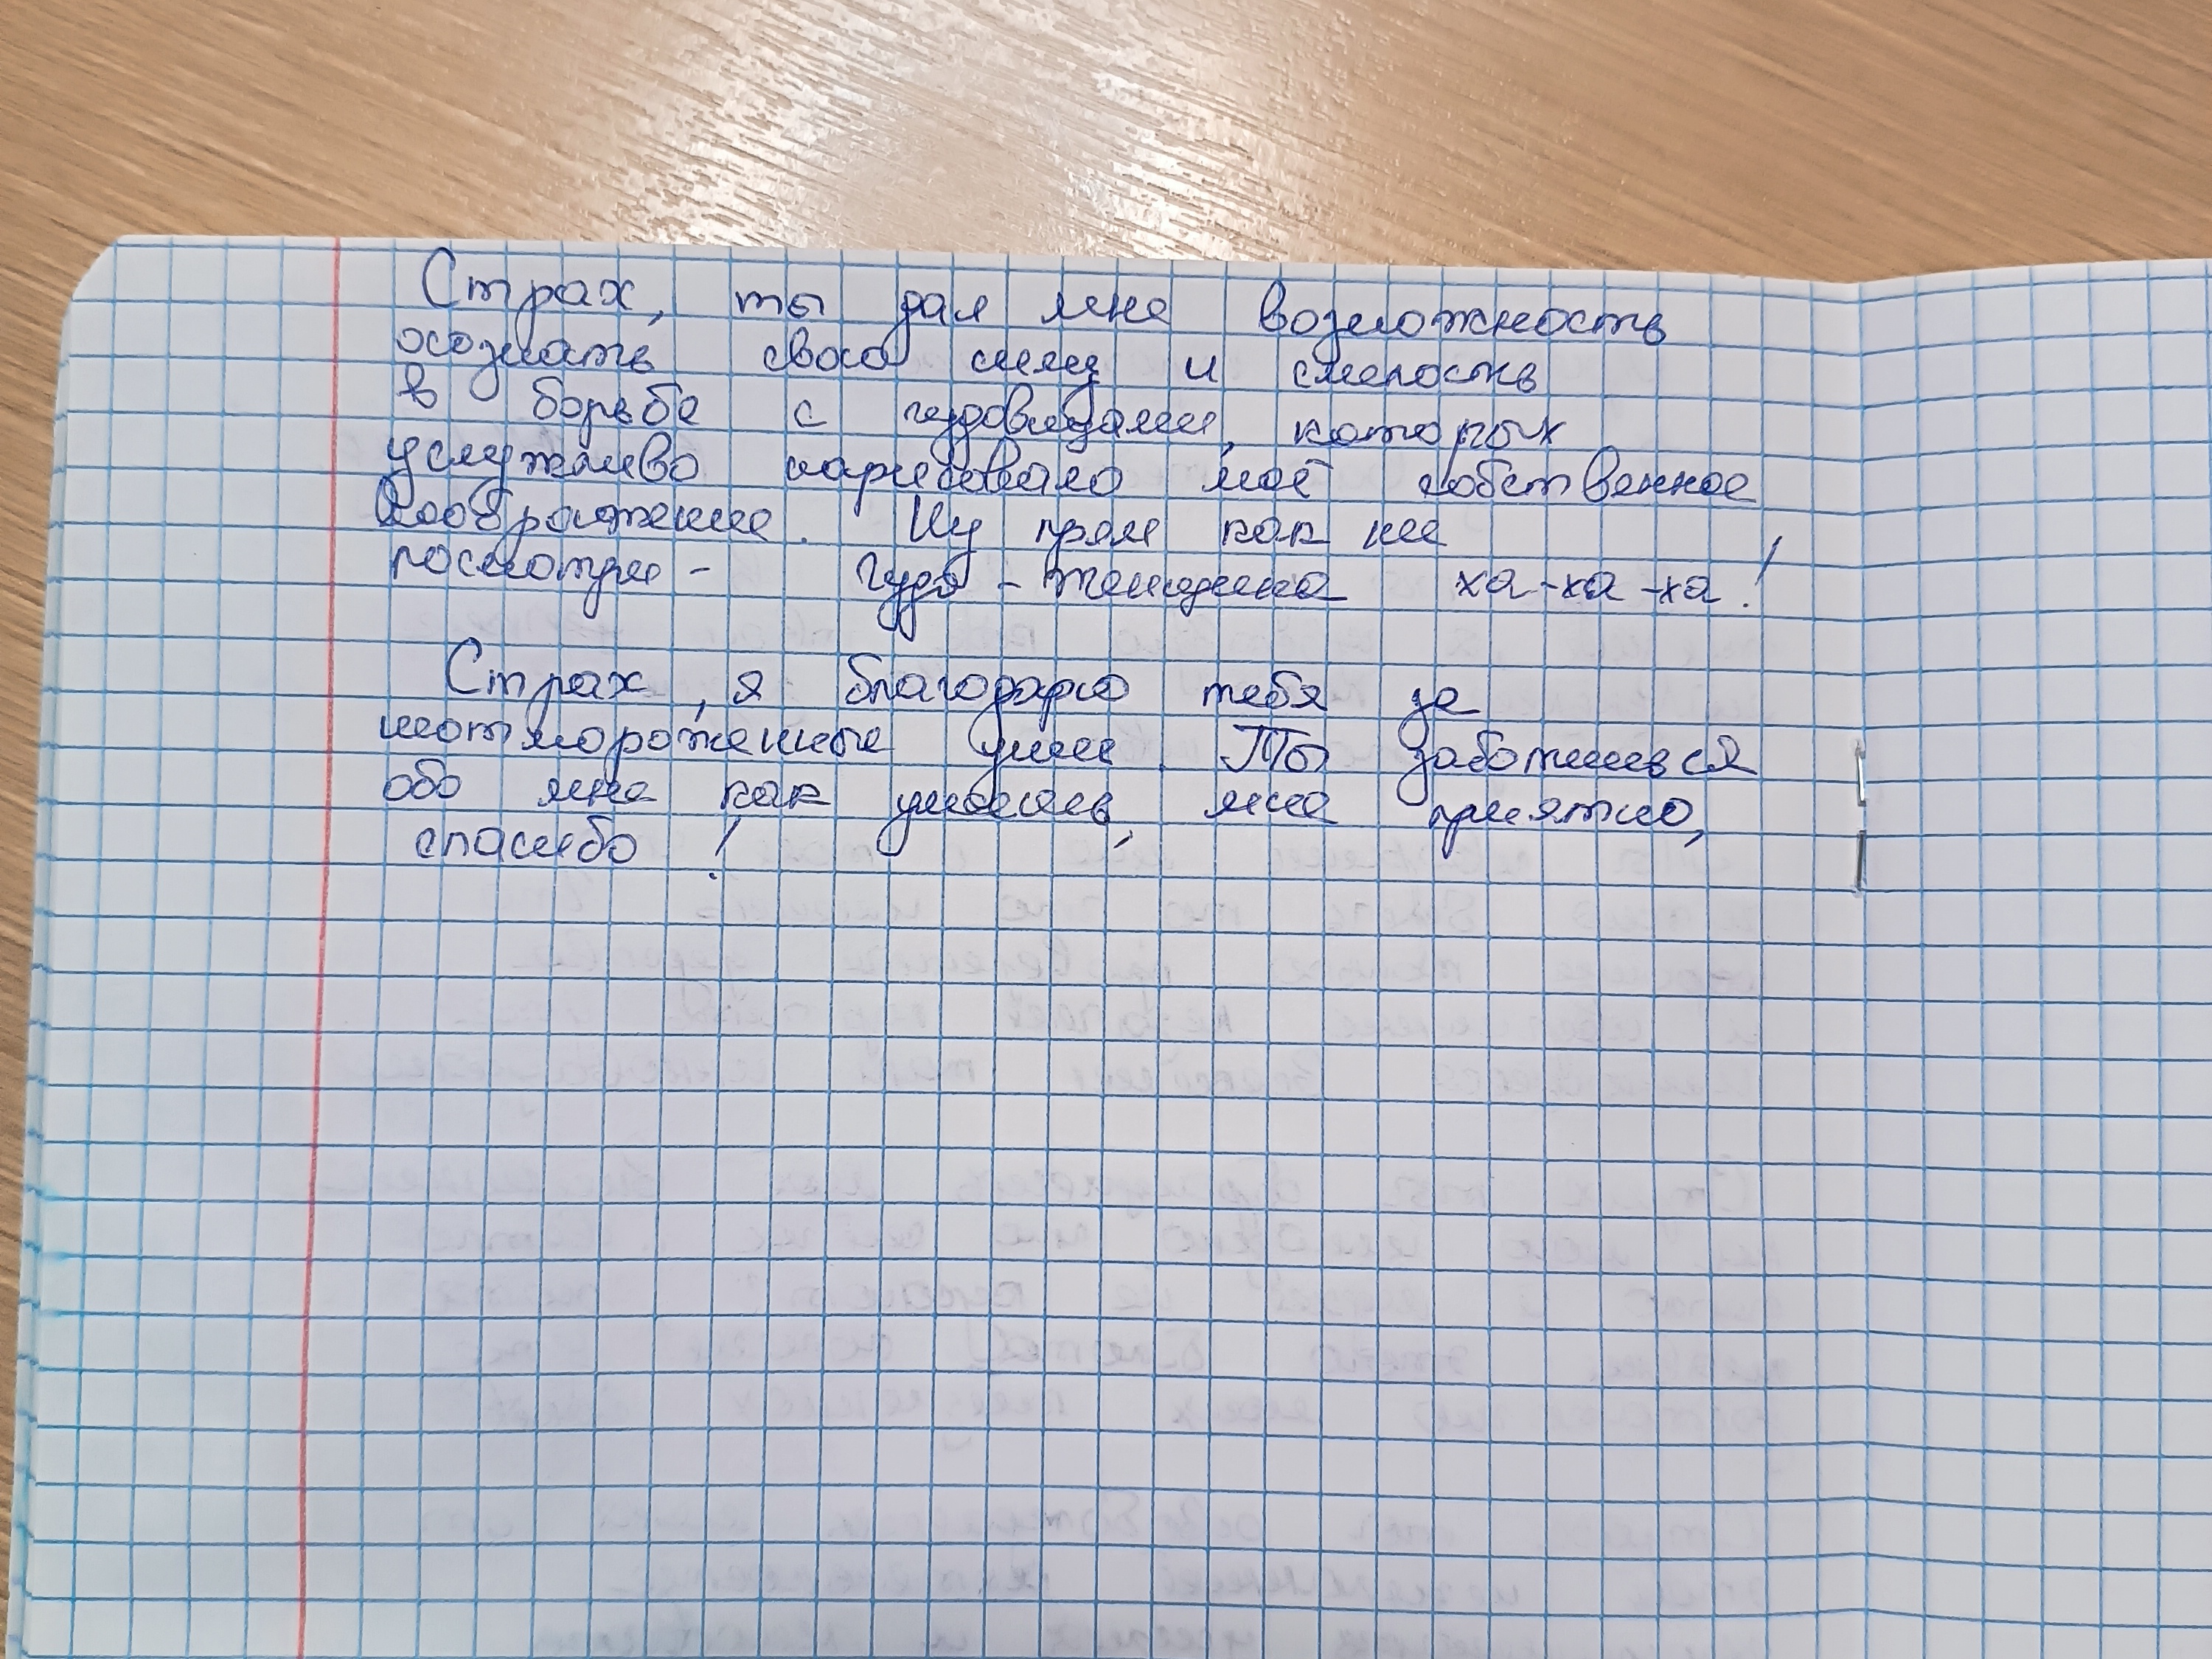 Страх, ты дал мне возможность
осознать свою силу и смелость
в борьбе с чудовищами, которых
услужливо нарисовало моё собственное
воображение. Ну прям как ни
посмотри - чудо - женщина ха-ха-ха!
Страх, я благодарю тебя за
неотмороженные уши. Ты заботишься
обо мне как умеешь, мне приятно,
спасибо!